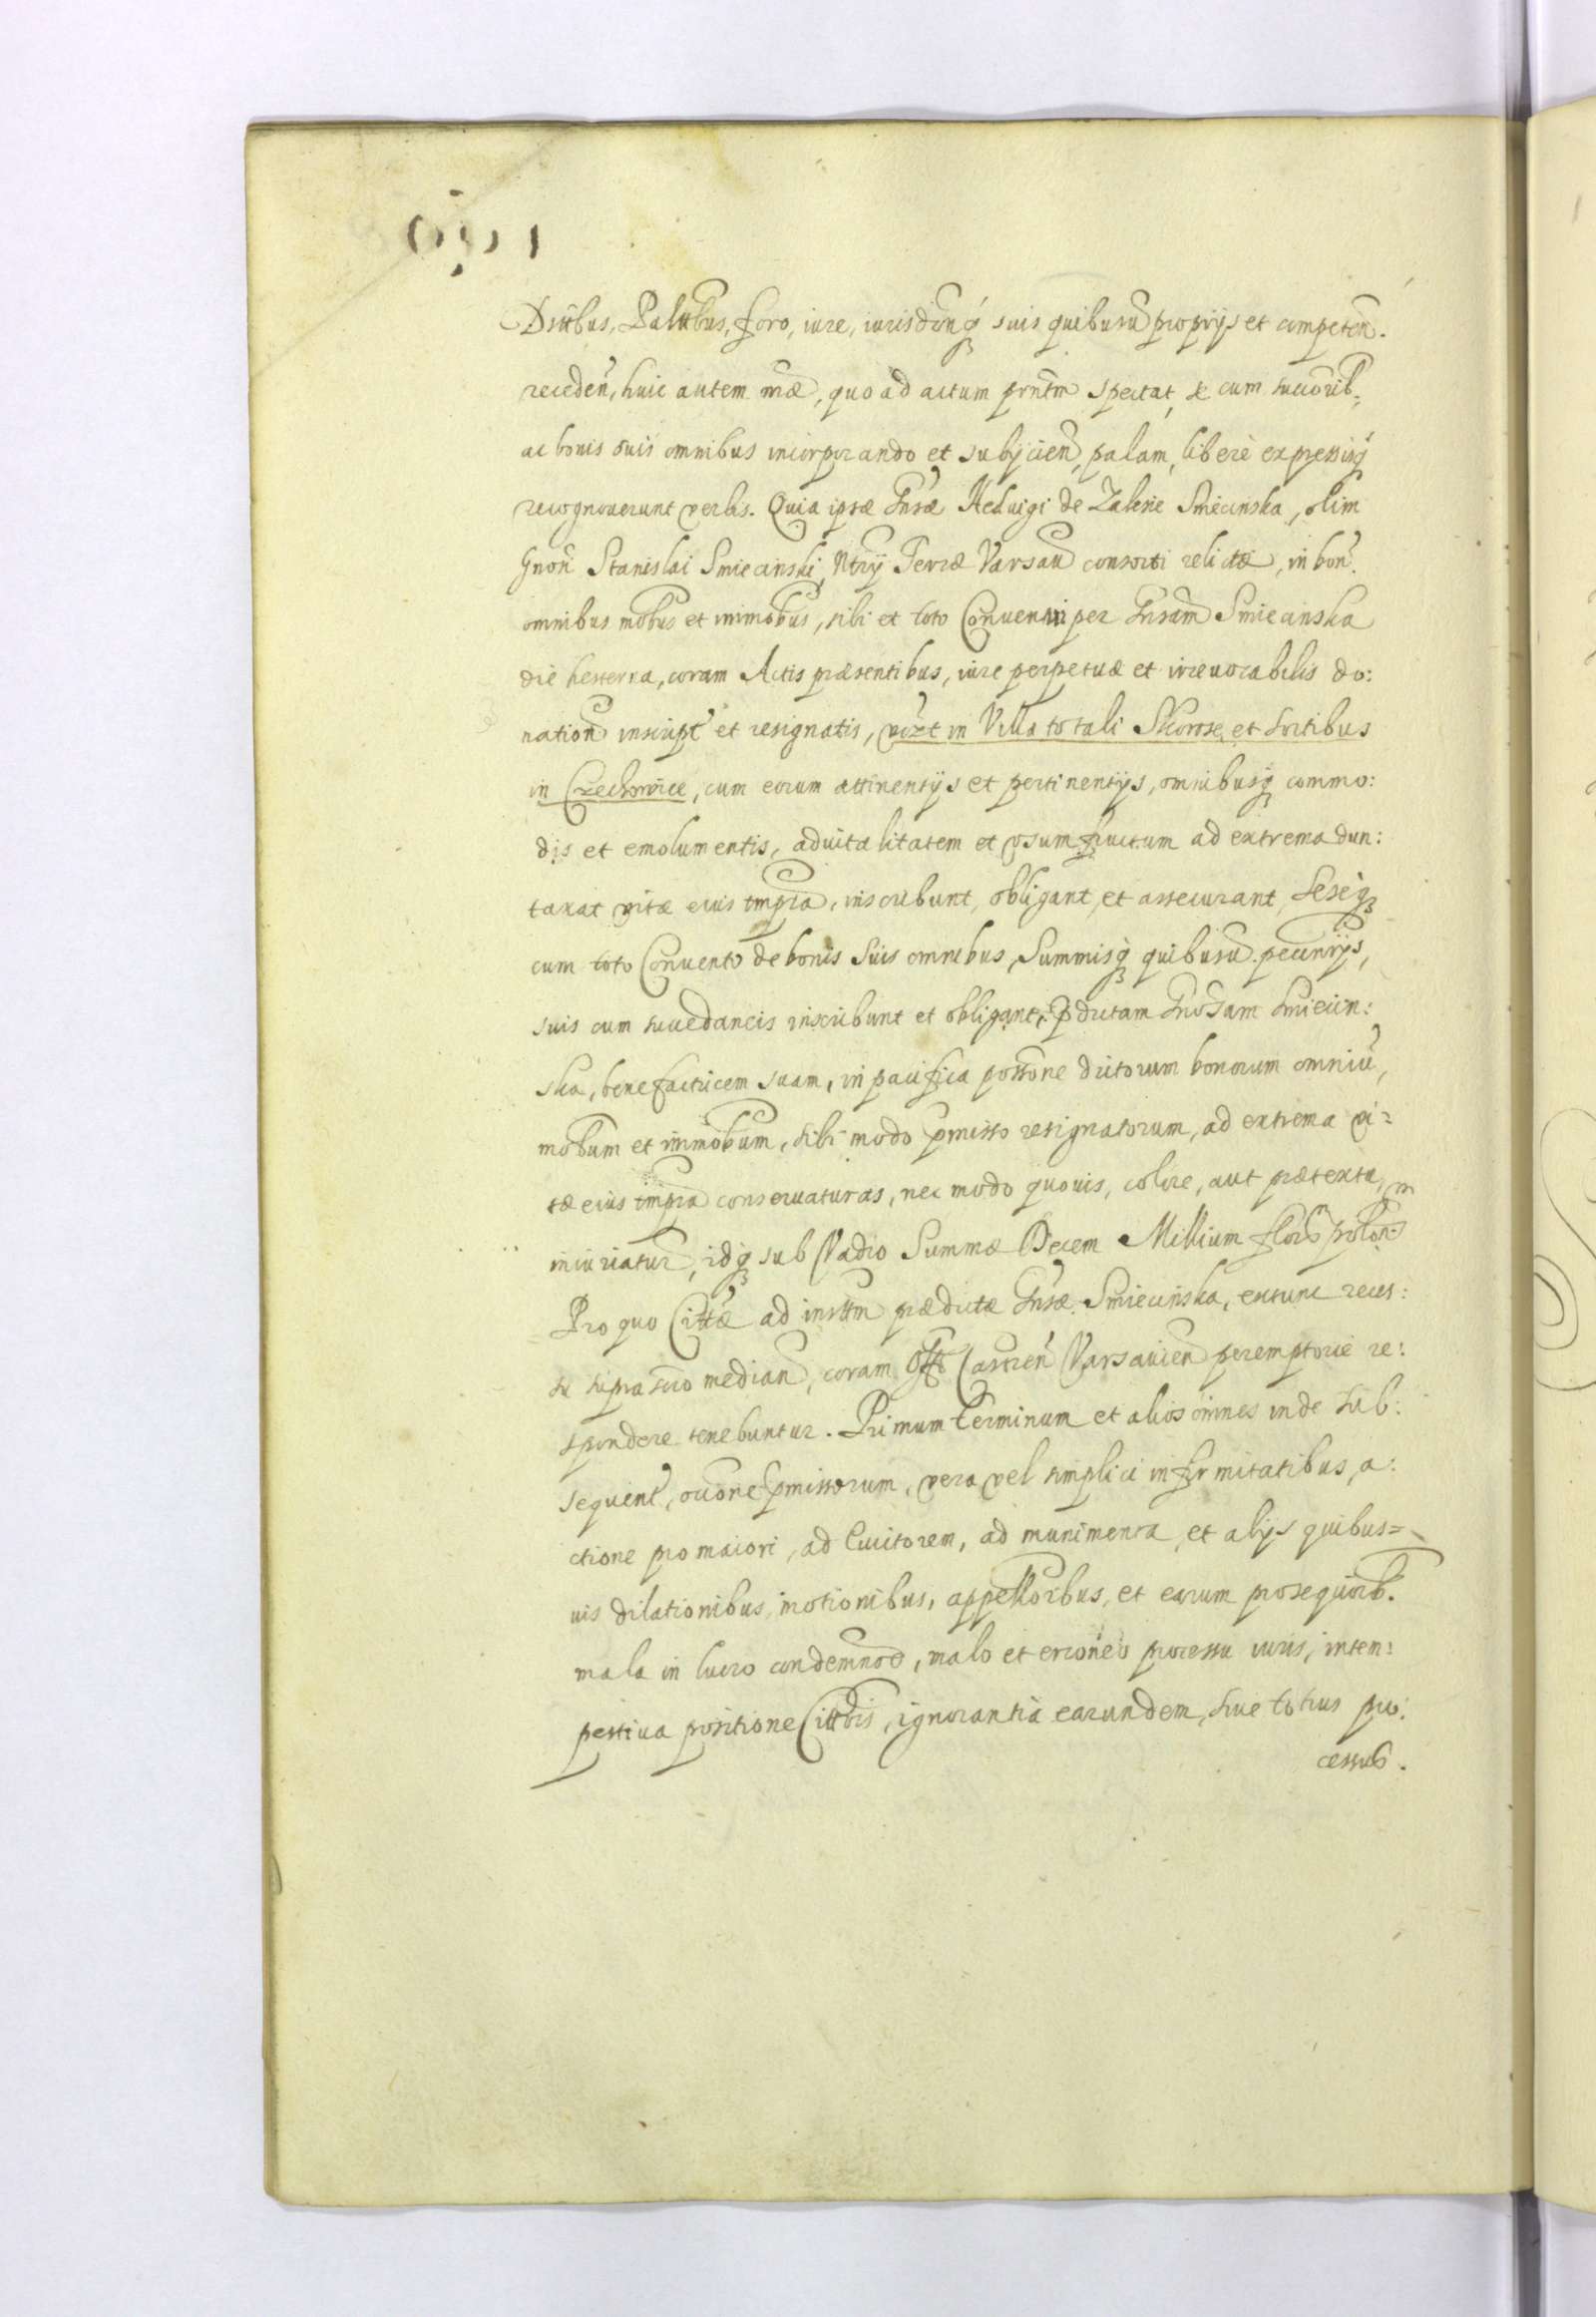 Distbus, Palattbus, foro, iure, iurisdonq́ suis quibusu proprijs et competen.
receden, huic autem mæ, quo ad actum prntm spectat, se cum succorib,
ac bonis suis omnibus incorporando et subijcien, palam, liberè expressisq́
recognouerunt verbis. Quia ipsæ Gnsæ Heduigi de Zalesie Smiecinska, olim
Gnon Stanislai Smiecinski, Ntrij Terræ Varsau consorti relictæ, in bon.
omnibus mobus et immobus, sibi et toto Conuenui per Gnsam Smiecinska
die hesterna, coram Actis præsentibus, iure perpetuæ et irreuocabilis do:
nation inscript et resignatis, vizt in Villa totali Skorosze, et sortibus
in Czechowice, cum eorum attinentijs et pertinentijs, omnibusq́ commo:
dis et emolumentis, aduitalitatem et vsumfructum ad extrema dun:
taxat vitæ eius tmpra, inscribunt, obligant, et assecurant, Seseq́
cum toto Conuento de bonis Suis omnibus, Summisq́ quibusu pecunijs,
suis cum succedaneis inscribunt et obligant, pdictam Gnosam Smiecin:
ska, benefactricem suam, in pacifica possone dictorum bonorum omniu,
mobum et immobum, sibi modo pmisso resignatorum, ad extrema vi:
tæ eius tmpra conseruaturas, nec modo quouis, colore, aut prætextu,
iniuriatur, idq́ sub Vadio Summæ Decem Millium flor polon
Pro quo Cittæ ad insttm prædictæ Gnsæ Smiecinska, extunc reces:
su supra scro median, coram Offo Castren Varsauien peremptorie re:
spondere tenebuntur. Primum terminum et alios omnes inde sub:
sequent, occone pmissorum, vera vel simplici infirmitatibus, a:
ctione pro maiori, ad Euictorem, ad munimenta, et alijs quibus=
uis dilationibus, motionibus, appellorbus, et earum prosequorb.
mala in lucro condemnoe, malo et erroneo processu iuris, intem:
pestiua positione Cittois, ignorantia earundem, siue totius pro:
cessus.